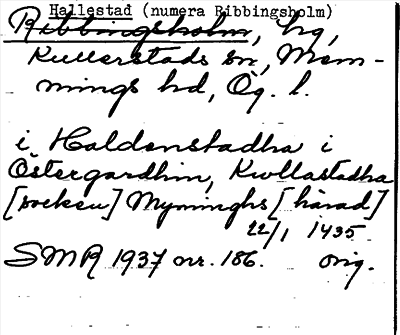 Hallestad (numera Ribbingsholm)
Ribbingsholm, hg,
Kullerstads sn, Mem-
mings hd, Ög. l.
i Haldenstadha i
Östergardhin, Kwllastadha
[socken] Myninghs [härad]
22/1 1435
SMR 1937 nr. 186. orig.